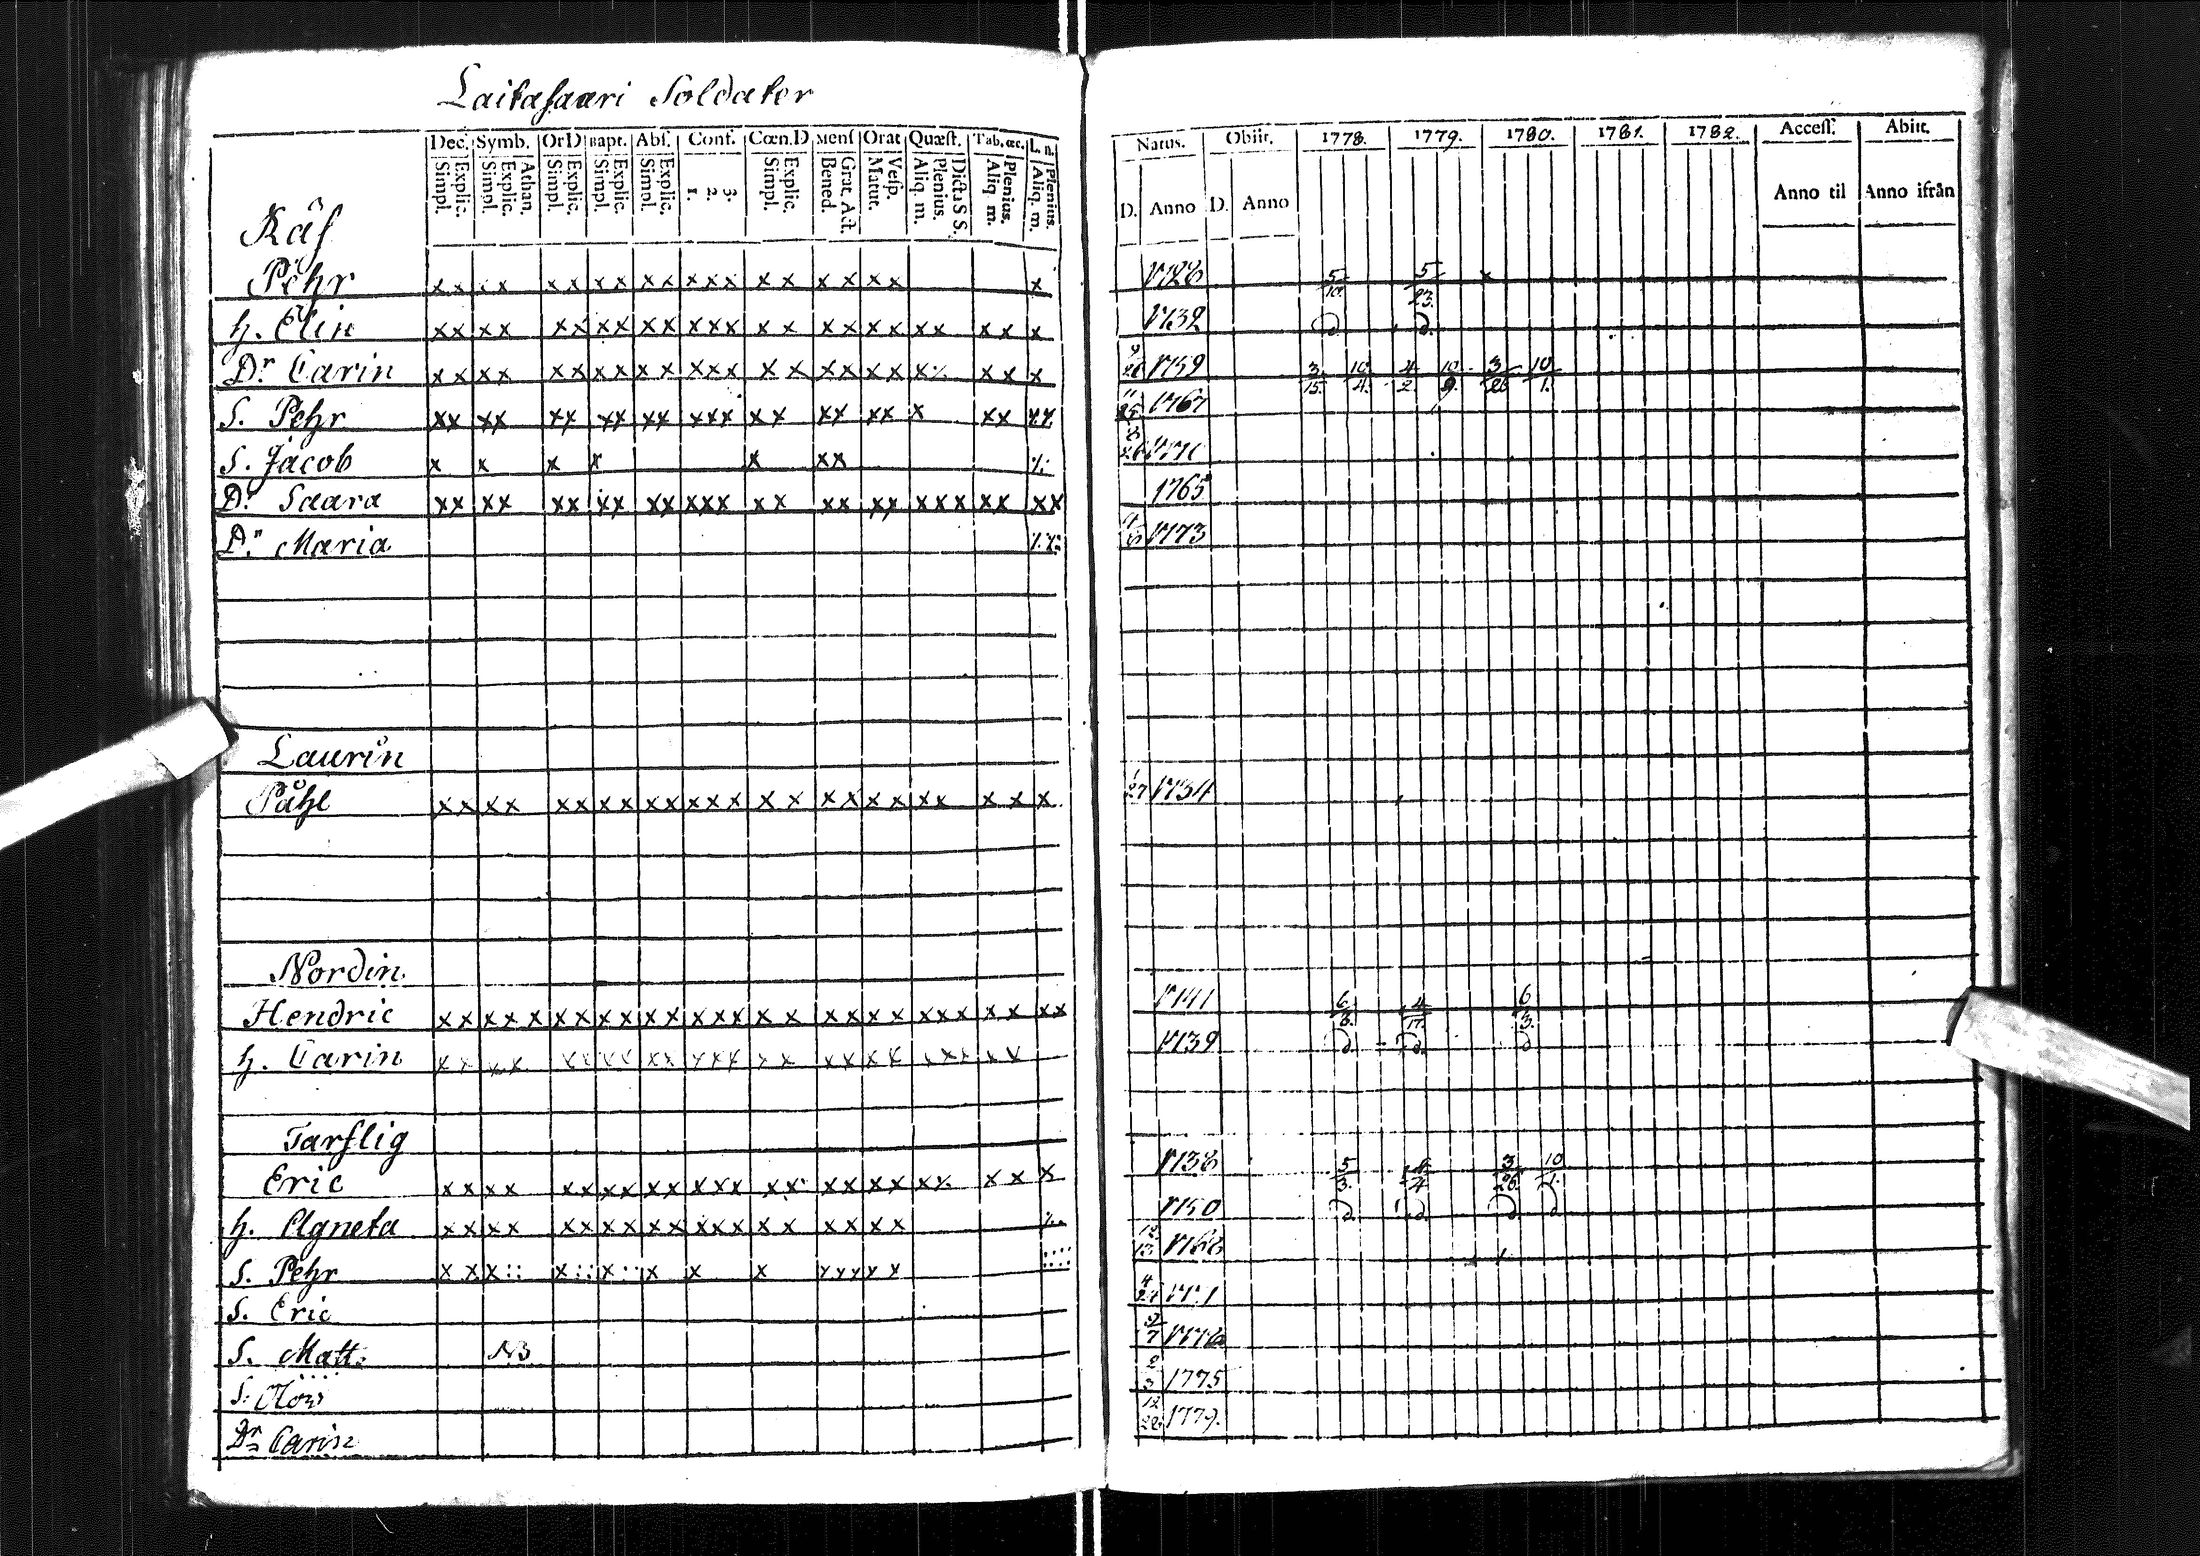 Laitasaari Soldater
Dec. Symb. Or D Bapt. Abs. Conf. Cœn.D Mens Orat Quæst. Tab. œc. L. n.
Simpl. Explic. Simpl. Explic. Athan. Simpl. Explic. Simpl. Explic. Simpl. Explic. 1. 2. 3. Simpl. Explic. Bened. Grat. Act. Matut. Vesp. Aliq. m. Plenius. Dicta S S. Aliq. m. Plenius. Aliq. m. Plenius.
Natus. Obiit. 1778. 1779. 1780. 1781. 1782. Access. Abiit.
D. Anno D. Anno Anno til Anno ifrån
Räf
Pehr x x x x x x x x x x x x x x x x x x x x 1728 5/10. 5/23. x
h. Elin x x x x x x x x x x x x x x x x x x x x x x x x 1732 D. D.
Dr. Carin x x x x x x x x x x x x x x x x x x x x x x x 9/26 1759 3/15. 10/4. 4/2 10/9. 3/26 10/1.
S. Pehr x x x x x x x x x x x x x x x x x x x x x x 1767
S. Jacob x x x x x x x
Dr. Saara x x x x x x x x x x x x x x x x x x x x x x x x x x 1765
Dr. Maria 1773
Laurin
Påhl x x x x x x x x x x x x x x x x x x x x x x x x 1/27 1734
Nordin.
Hendric x x x x x x x x x x x x x x x x x x x x x x x x x x x 1741 6/3. 4/17. 6/3.
h. Carin x x x x x x x x x x x x x x x x x x x x x x x x 1739 D. D. D.
Tarflig
Eric x x x x x x x x x x x x x x x x x x x x x x x 1738 5/3. 4/4 3/26. 10/1.
h. Agneta x x x x x x x x x x x x x x x x x x x 1750 D. D. D. D.
S. Pehr x x x x x x x x x x x x x 12/13 1768
S. Eric 4/24 1771
S. Matt. NB 2/7 1776
S. Olow 2/3 1775
Dr. Carin 12/28 1779.